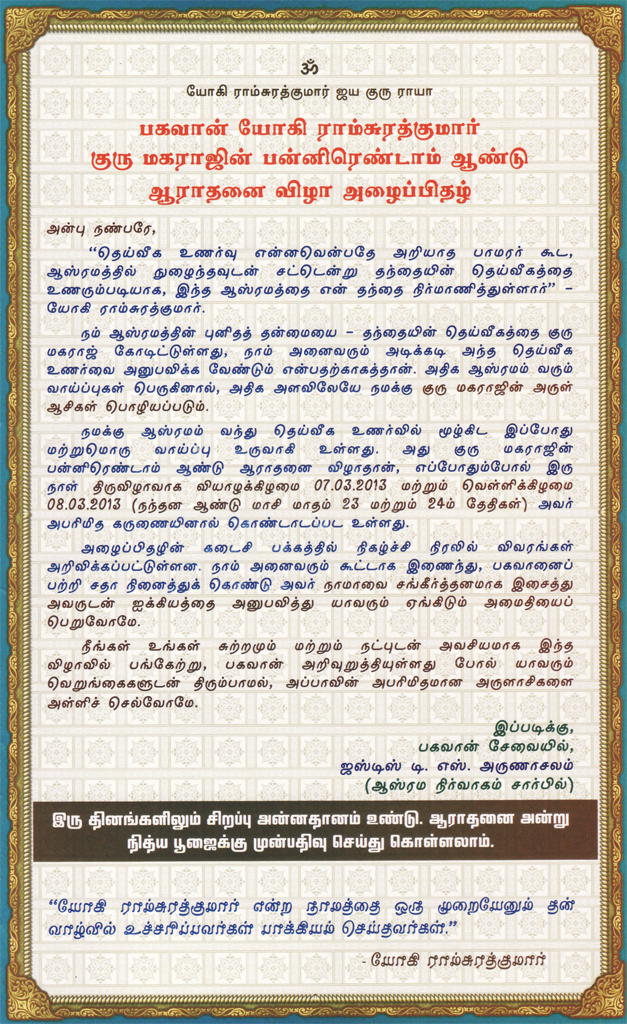 ॐ
யோகி ராம்சுரத்குமார் ஜய குரு ராயா
பகவான் யோகி ராம்சுரத்குமார்
குரு மகராஜின் பன்னிரெண்டாம் ஆண்டு
ஆராதனை விழா அழைப்பிதழ்
அன்பு நண்பரே,
“தெய்வீக உணர்வு என்னவென்பதே அறியாத பாமரர் கூட,
ஆஸ்ரமத்தில் நுழைந்தவுடன் சட்டென்று தந்தையின் தெய்வீகத்தை
உணரும்படியாக, இந்த ஆஸ்ரமத்தை என் தந்தை நிர்மாணித்துள்ளார்” –
யோகி ராம்சுரத்குமார்.
நம் ஆஸ்ரமத்தின் புனிதத் தன்மையை – தந்தையின் தெய்வீகத்தை குரு
மகராஜ் கோடிட்டுள்ளது, நாம் அனைவரும் அடிக்கடி அந்த தெய்வீக
உணர்வை அனுபவிக்க வேண்டும் என்பதற்காகத்தான். அதிக ஆஸ்ரமம் வரும்
வாய்ப்புகள் பெருகினால், அதிக அளவிலேயே நமக்கு குரு மகராஜின் அருள்
ஆசிகள் பொழியப்படும்.
நமக்கு ஆஸ்ரமம் வந்து தெய்வீக உணர்வில் மூழ்கிட இப்போது
மற்றுமொரு வாய்ப்பு உருவாகி உள்ளது. அது குரு மகராஜின்
பன்னிரெண்டாம் ஆண்டு ஆராதனை விழாதான், எப்போதும்போல் இரு
நாள் திருவிழாவாக வியாழக்கிழமை 07.03.2013 மற்றும் வெள்ளிக்கிழமை
08.03.2013 (நந்தன ஆண்டு மாசி மாதம் 23 மற்றும் 24ம் தேதிகள்) அவர்
அபரிமித கருணையினால் கொண்டாடப்பட உள்ளது.
அழைப்பிதழின் கடைசி பக்கத்தில் நிகழ்ச்சி நிரலில் விவரங்கள்
அறிவிக்கப்பட்டுள்ளன. நாம் அனைவரும் கூட்டாக இணைந்து, பகவானைப்
பற்றி சதா நினைத்துக் கொண்டு அவர் நாமாவை சங்கீர்த்தனமாக இசைத்து
அவருடன் ஐக்கியத்தை அனுபவித்து யாவரும் ஏங்கிடும் அமைதியைப்
பெறுவோமே.
நீங்கள் உங்கள் சுற்றமும் மற்றும் நட்புடன் அவசியமாக இந்த
விழாவில் பங்கேற்று, பகவான் அறிவுறுத்தியுள்ளது போல் யாவரும்
வெறுங்கைகளுடன் திரும்பாமல், அப்பாவின் அபரிமிதமான அருளாசிகளை
அள்ளிச் செல்வோமே.
இப்படிக்கு,
பகவான் சேவையில்,
ஜஸ்டிஸ் டி. எஸ். அருணாசலம்
(ஆஸ்ரம நிர்வாகம் சார்பில்)
இரு தினங்களிலும் சிறப்பு அன்னதானம் உண்டு. ஆராதனை அன்று
நித்ய பூஜைக்கு முன்பதிவு செய்து கொள்ளலாம்.
“யோகி ராம்சுரத்குமார் என்ற நாமத்தை ஒரு முறையேனும் தன்
வாழ்வில் உச்சரிப்பவர்கள் பாக்கியம் செய்தவர்கள்.”
- யோகி ராம்சுரத்குமார்